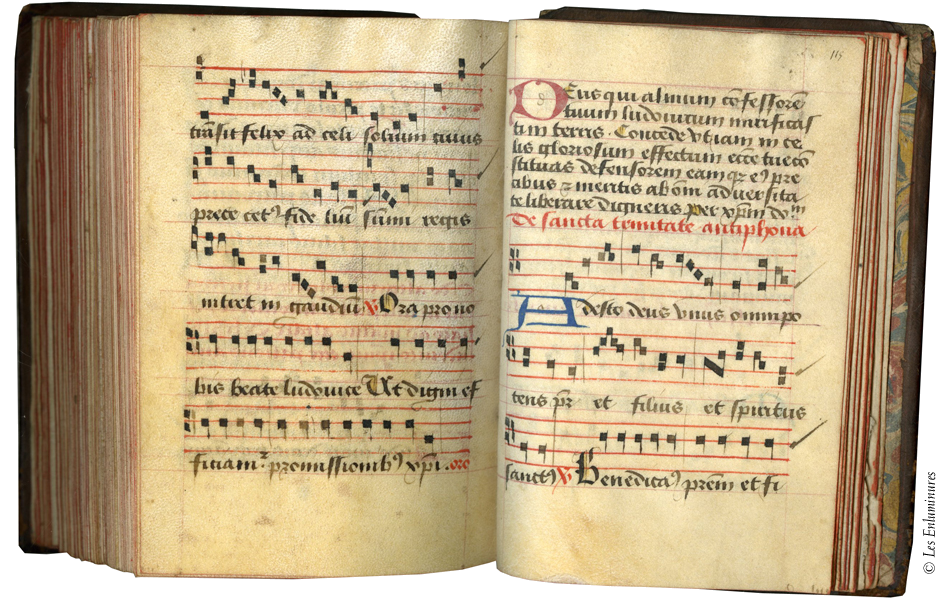 transit felix ad celi solium cuius
prece cet9 fide liu sumi regis
intret in gaudiu ꝟ Ora pro no
bis beate ludovice Ut digni ef
ficiam2 promissionib9 xpi . oro
115
Deus qui almum cōfessorē
tuum ludovicum mirificas
ti in terris . Concede ut iam in ce
lis gloriosum effectum ecce tuecō
stituas defensorem eam qz e9 pre
cibus ⁊ meritis ab om adversita
te liberare digneris per xpm dom
De sancta trinitate antiphona
Adesto deus unus omnipo
tens pr et filius et spiritus
sanct9 ꝟ Benedica9 prem et fi
© Les Enluminures